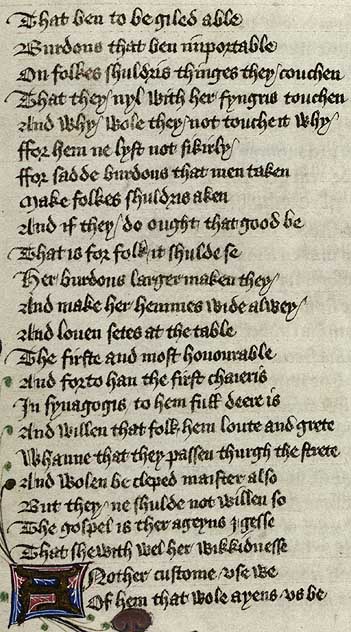 That ben to be giled able
Burdons that ben inportable
On folkes shuldris thinges they couchen
That they nyl with her fyngris touchen
And why wole they not touche it why
ffor hem ne lyst not sikirly
ffor sadde burdons that men taken
Make folkes shuldris aken
And if they do ought that good be
That is for folk it shulde se
Her burdons larger maken they
And make her hemmes wide alwey
And louen setes at the table
The firste and most honourable
And forto han the first chaieris
In synagogis to hem full deere is
And willen that folk hem loute and grete
Whanne that they passen thurgh the strete
And wolen be cleped maister also
But they ne shulde not willen so
The gospel is ther ageyns I gesse
That shewith wel her wikkidnesse
Another custome vse we
Of hem that wole ayens vs be